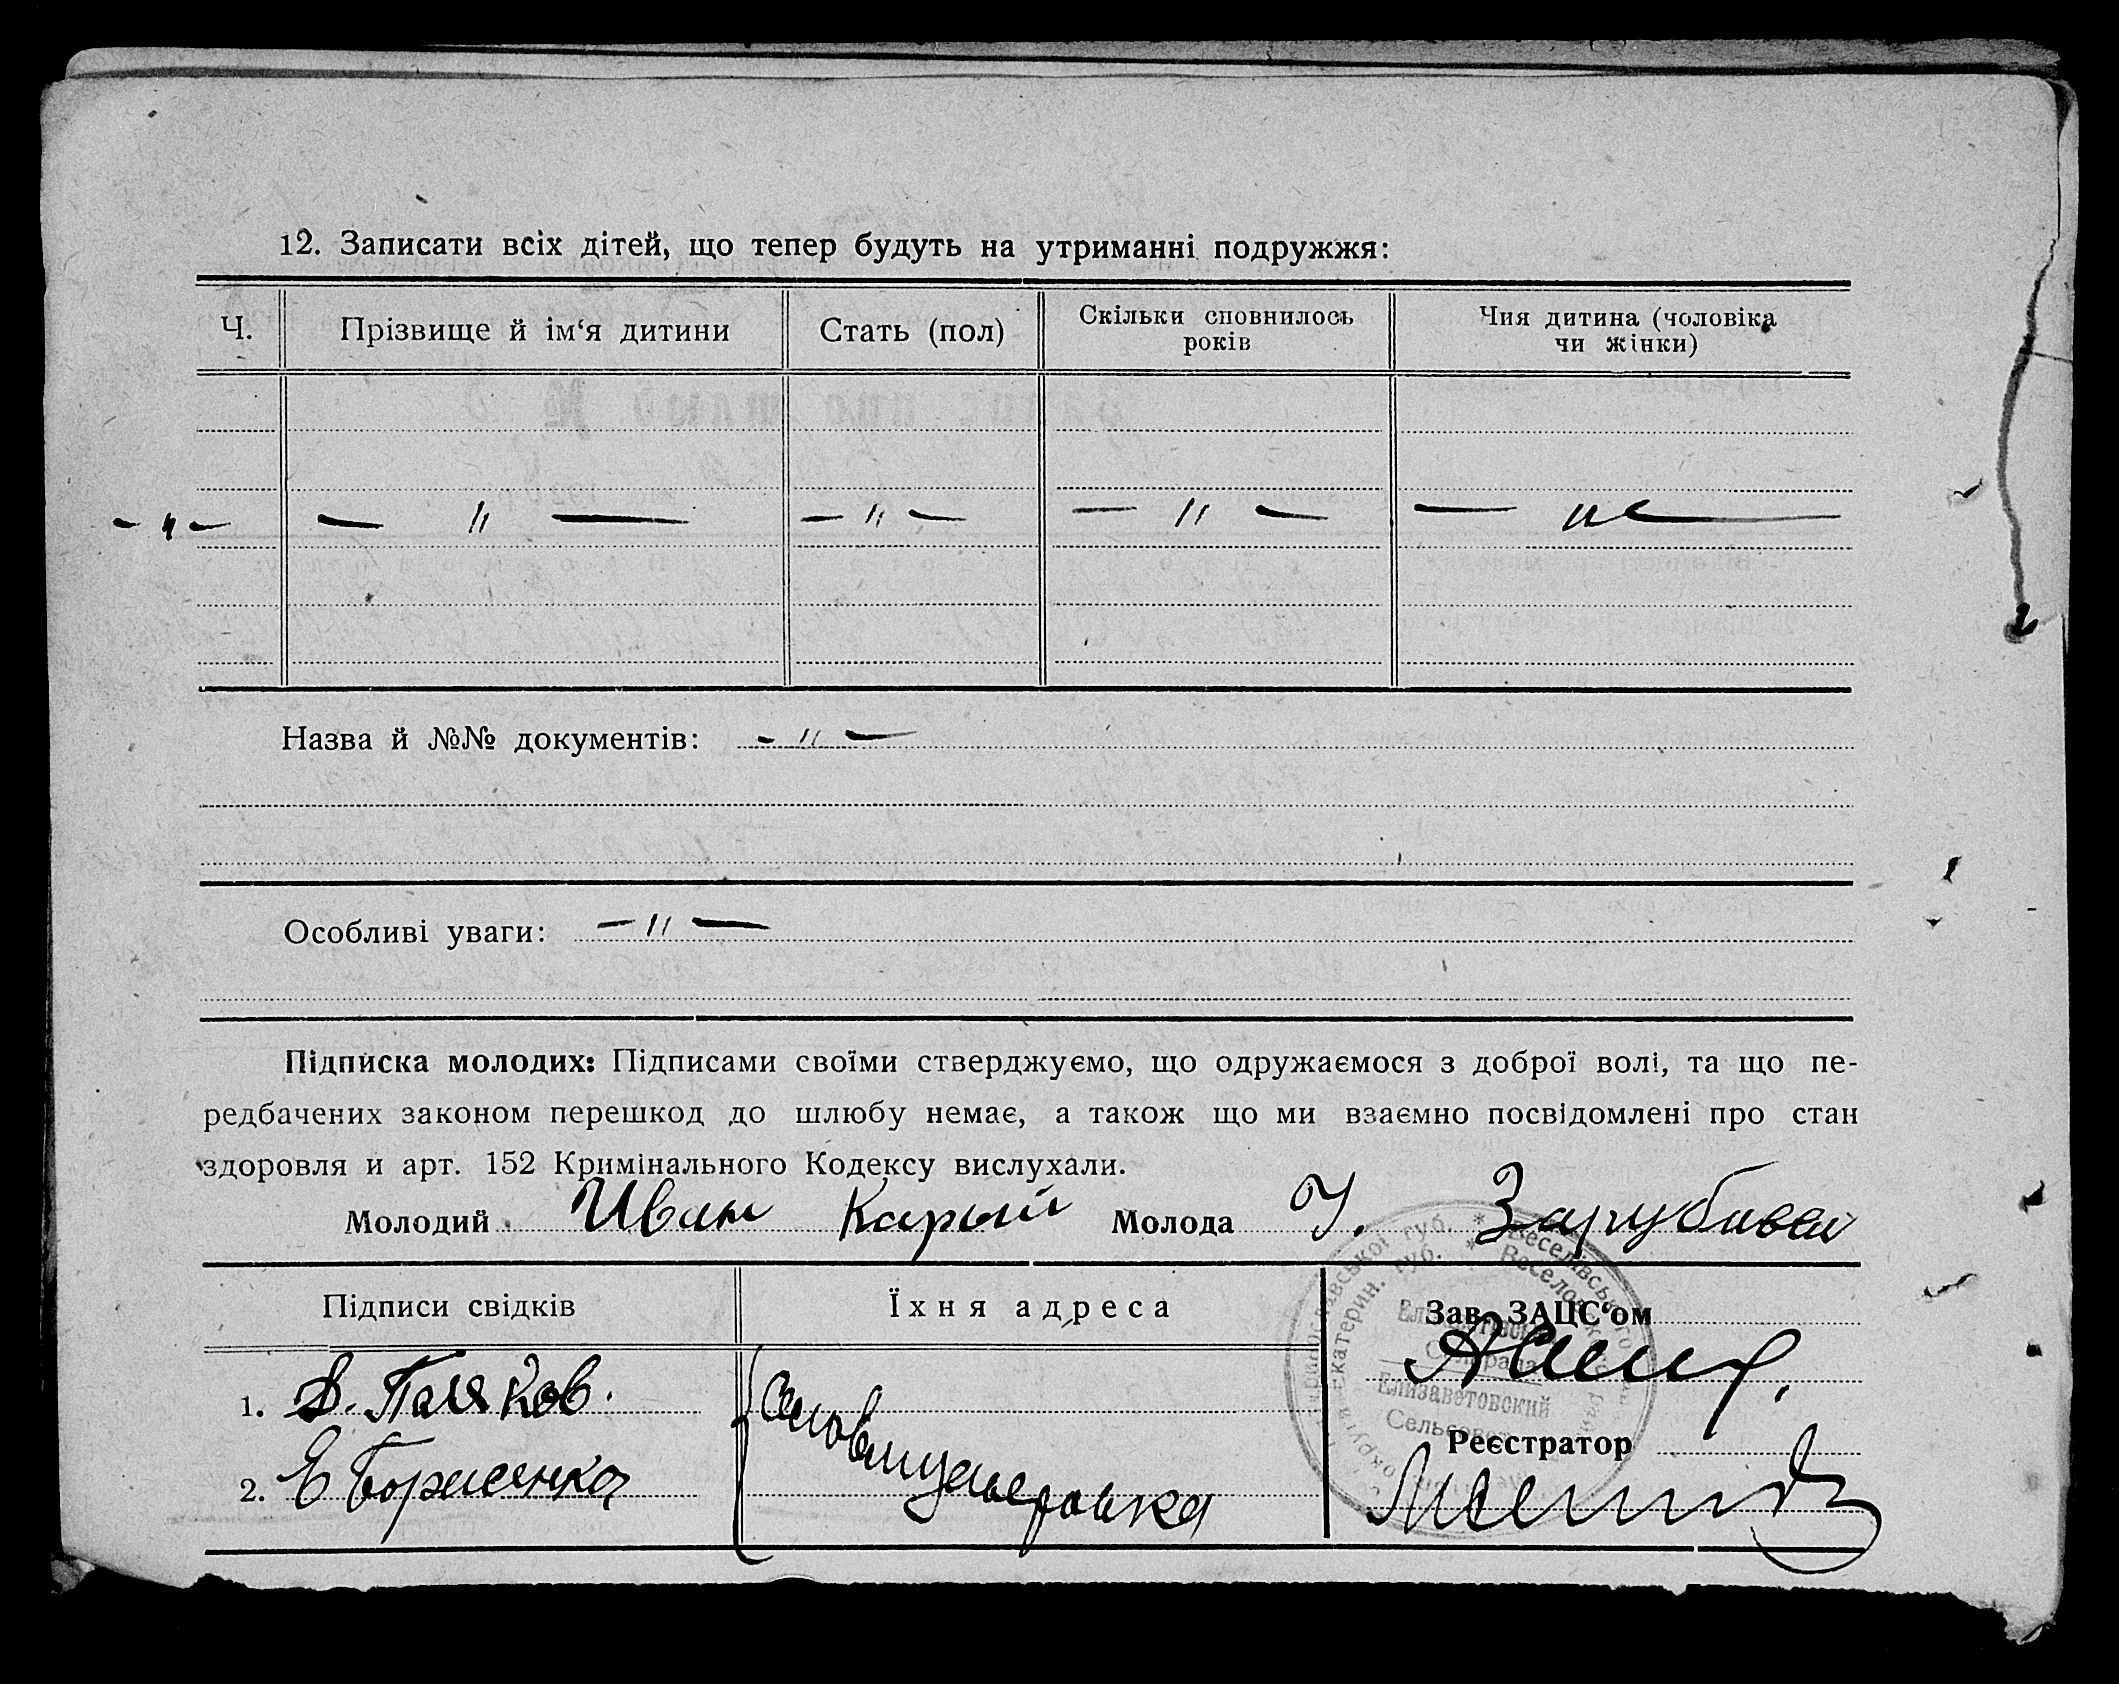 12. Записати всіх дітей, що тепер будуть на утриманні подружжя:
Ч. Прізвище й ім‘я дитини Стать (пол) Скільки сповнилось років Чия дитина (чоловіка чи жінки)
- " - - " - - " - - " - - " -
Назва й №№ документів: - " -
Особливі уваги: - " -
Підписка молодих: Підписами своїми стверджуємо, що одружаємося з доброї волі, та що пе-
редбачених законом перешкод до шлюбу немає, а також що ми взаємно посвідомлені про стан
здоровля и арт. 152 Кримінального Кодексу вислухали.
Молодий Иван Карый Молода У.
Підписи свідків Їхня адреса Зав. ЗАЦС‘ом
1.
2.
Реєстратор
Елизаветовский
Сельсовет